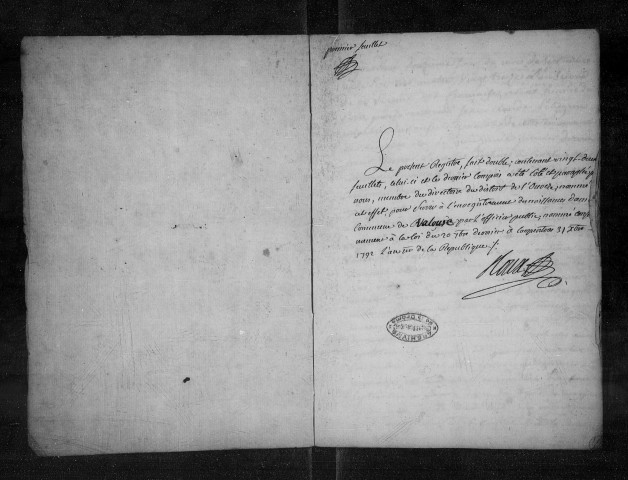 premier feuillet
Le présent Registre, fait double, contenant vingt deux
feuillets, celui ci et le dernier compris a été coté et paraphé par
nous, membre du directoire du district de l'Ouvèze, nommé
cet effet, pour servir à l'enregistrement des naissances dans
commune de Valouse, par l'officier public, nommé
à la loi du 20 7bre dernier à 31 Xbre
1792 L'an 1er de la République ./.
Roux